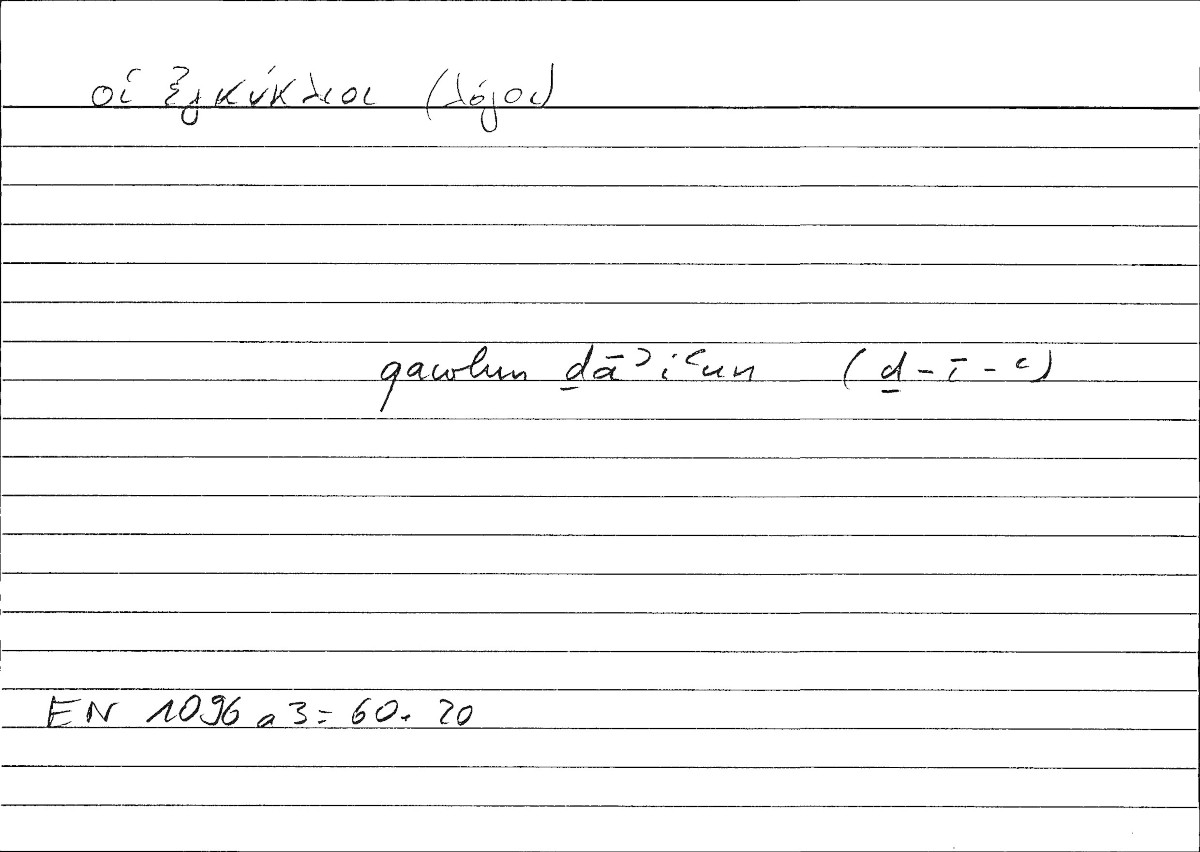 οἱ ἐγκύκλιοι (λόγοι)
qawlun ḏāʾiʿun (ḏ-ī-ʿ)
EN 1096 a 3 = 60. 20